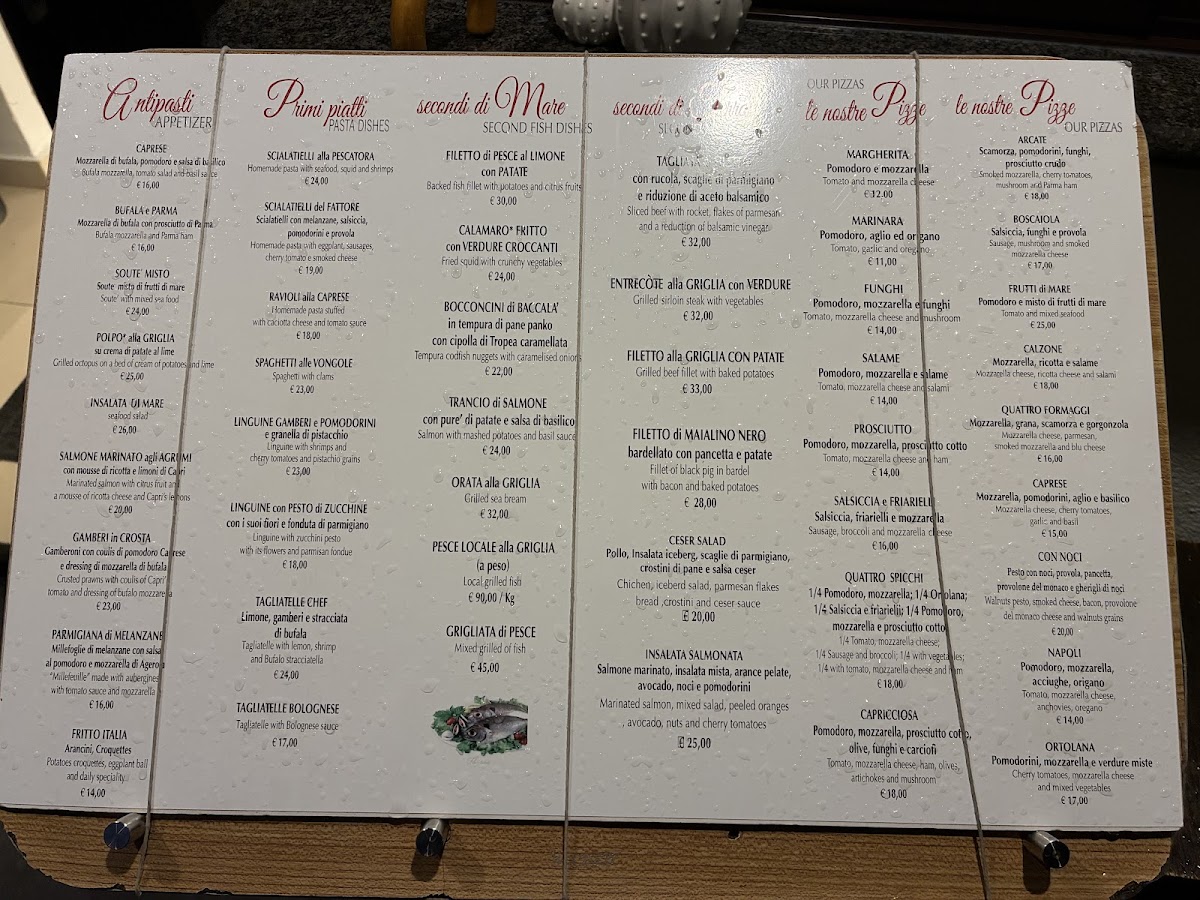 Antipasti
APPETIZER
CAPRESE
Mozzarella di bufala, pomodoro e salsa di basilico
Bufala mozzarella, tomato salad and basil sauce
€ 16,00
BUFALA e PARMA
Mozzarella di bufala con prosciutto di Parma
Bufala mozzarella and Parma ham
€ 16,00
SOUTE' MISTO
Soute' misto di frutti di mare
Soute' with mixed sea food
€ 24,00
POLPO* alla GRIGLIA
su crema di patate al lime
Grilled octopus on a bed of cream of potatoes and lime
€ 25,00
INSALATA DI MARE
seafood salad
€ 26,00
SALMONE MARINATO agli AGRUMI
con mousse di ricotta e limoni di Capri
Marinated salmon with citrus fruit and
a mousse of ricotta cheese and Capri's lemons
€ 20,00
GAMBERI in CROSTA
Gamberoni con coulis di pomodoro Caprese
e dressing di mozzarella di bufala
Crusted prawns with coulis of Capri'
tomato and dressing of bufalo mozzarella
€ 23,00
PARMIGIANA di MELANZANE
Millefoglie di melanzane con salsa
al pomodoro e mozzarella di Agerola
"Millefeuille" made with aubergines
with tomato sauce and mozzarella
€ 16,00
FRITTO ITALIA
Arancini, Croquettes
Potatoes croquettes, eggplant ball
and daily speciality
€ 14,00
Primi piatti
PASTA DISHES
SCIALATIELLI alla PESCATORA
Homemade pasta with seafood, squid and shrimps
€ 24,00
SCIALATIELLI del FATTORE
Scialatielli con melanzane, salsiccia,
pomodorini e provola
Homemade pasta with eggplant, sausages,
cherry tomato e smoked cheese
€ 19,00
RAVIOLI alla CAPRESE
Homemade pasta stuffed
with caciotta cheese and tomato sauce
€ 18,00
SPAGHETTI alle VONGOLE
Spaghetti with clams
€ 23,00
LINGUINE GAMBERI e POMODORINI
e granella di pistacchio
Linguine with shrimps and
cherry tomatoes and pistachio grains
€ 23,00
LINGUINE con PESTO di ZUCCHINE
con i suoi fiori e fonduta di parmigiano
Linguine with zucchini pesto
with its flowers and parmisan fondue
€ 18,00
TAGLIATELLE CHEF
Limone, gamberi e stracciata
di bufala
Tagliatelle with lemon, shrimp
and Bufalo stracciatella
€ 24,00
TAGLIATELLE BOLOGNESE
Tagliatelle with Bolognese sauce
€ 17,00
secondi di Mare
SECOND FISH DISHES
FILETTO di PESCE al LIMONE
con PATATE
Backed fish fillet with potatoes and citrus fruits
€ 30,00
CALAMARO* FRITTO
con VERDURE CROCCANTI
Fried squid with crunchy vegetables
€ 24,00
BOCCONCINI di BACCALA'
in tempura di pane panko
con cipolla di Tropea caramellata
Tempura codfish nuggets with caramelised onions
€ 22,00
TRANCIO di SALMONE
con pure' di patate e salsa di basilico
Salmon with mashed potatoes and basil sauce
€ 24,00
ORATA alla GRIGLIA
Grilled sea bream
€ 32,00
PESCE LOCALE alla GRIGLIA
(a peso)
Local grilled fish
€ 90,00 / Kg
GRIGLIATA di PESCE
Mixed grilled of fish
€ 45,00
secondi di
con rucola, scaglie di parmigiano
e riduzione di aceto balsamico
Sliced beef with rocket, flakes of parmesan
and a reduction of balsamic vinegar
€ 32,00
ENTRECÒTE alla GRIGLIA con VERDURE
Grilled sirloin steak with vegetables
€ 32,00
FILETTO alla GRIGLIA CON PATATE
Grilled beef fillet with baked potatoes
€ 33,00
FILETTO di MAIALINO NERO
bardellato con pancetta e patate
Fillet of black pig in bardel
with bacon and baked potatoes
€ 28,00
CESER SALAD
Pollo, Insalata iceberg, scaglie di parmigiano,
crostini di pane e salsa ceser
Chichen, iceberd salad, parmesan flakes
bread ,crostini and ceser sauce
€ 20,00
INSALATA SALMONATA
Salmone marinato, insalata mista, arance pelate,
avocado, noci e pomodorini
Marinated salmon, mixed salad, peeled oranges
, avocado, nuts and cherry tomatoes
€ 25,00
OUR PIZZAS
le nostre Pizze
MARGHERITA
Pomodoro e mozzarella
Tomato and mozzarella cheese
€ 12.00
MARINARA
Pomodoro, aglio ed origano
Tomato, garlic and oregano
€ 11,00
FUNGHI
Pomodoro, mozzarella e funghi
Tomato, mozzarella cheese and mushroom
€ 14,00
SALAME
Pomodoro, mozzarella e salame
Tomato, mozzarella cheese and salami
€ 14,00
PROSCIUTTO
Pomodoro, mozzarella, prosciutto cotto
Tomato, mozzarella cheese and ham
€ 14,00
SALSICCIA e FRIARIELLI
Salsiccia, friarielli e mozzarella
Sausage, broccoli and mozzarella cheese
€ 16,00
QUATTRO SPICCHI
1/4 Pomodoro, mozzarella; 1/4 Ortolana;
1/4 Salsiccia e friarielli; 1/4 Pomodoro,
mozzarella e prosciutto cotto
1/4 Tomato, mozzarella cheese;
1/4 Sausage and broccoli; 1/4 with vegetables;
1/4 with tomato, mozzarella cheese and ham
€ 18,00
CAPRICCIOSA
Pomodoro, mozzarella, prosciutto cotto,
olive, funghi e carciofi
Tomato, mozzarella cheese, ham, olives,
artichokes and mushroom
€ 18,00
le nostre Pizze
OUR PIZZAS
ARCATE
Scamorza, pomodorini, funghi,
prosciutto crudo
Smoked mozzarella, cherry tomatoes,
mushroom and Parma ham
€ 18,00
BOSCAIOLA
Salsiccia, funghi e provola
Sausage, mushroom and smoked
mozzarella cheese
€ 17,00
FRUTTI di MARE
Pomodoro e misto di frutti di mare
Tomato and mixed seafood
€ 25,00
CALZONE
Mozzarella, ricotta e salame
Mozzarella cheese, ricotta cheese and salami
€ 18,00
QUATTRO FORMAGGI
Mozzarella, grana, scamorza e gorgonzola
Mozzarella cheese, parmesan,
smoked mozzarella and blu cheese
€ 16,00
CAPRESE
Mozzarella, pomodorini, aglio e basilico
Mozzarella cheese, cherry tomatoes,
garlic and basil
€ 15,00
CON NOCI
Pesto con noci, provola, pancetta,
provolone del monaco e gherigli di noci
Walnuts pesto, smoked cheese, bacon, provolone
del monaco cheese and walnuts grains
€ 20,00
NAPOLI
Pomodoro, mozzarella,
acciughe, origano
Tomato, mozzarella cheese,
anchovies, oregano
€ 14,00
ORTOLANA
Pomodorini, mozzarella e verdure miste
Cherry tomatoes, mozzarella cheese
and mixed vegetables
€ 17,00